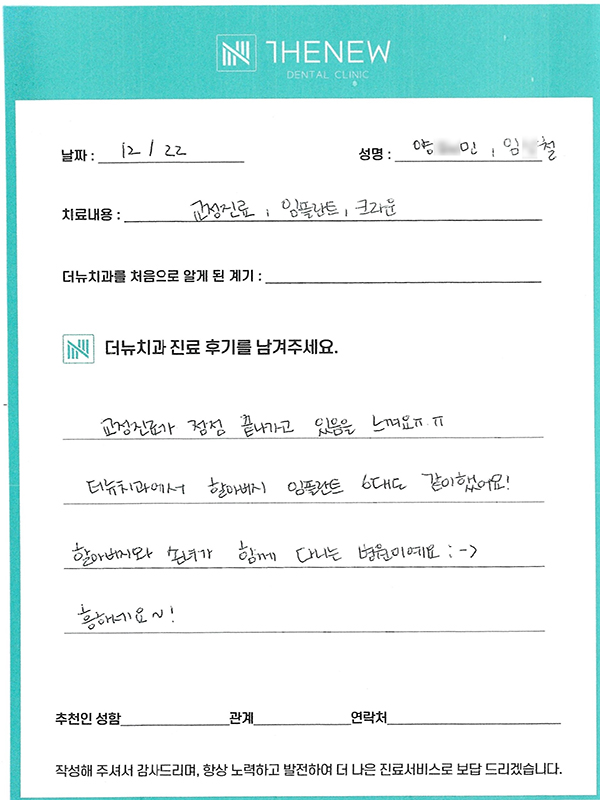 THENEW
DENTAL CLINIC
날짜 : 12 / 22 성명 : 양 민, 임 철
치료내용 : 교정진료, 임플란트, 크라운
더뉴치과를 처음으로 알게 된 계기 :
더뉴치과 진료 후기를 남겨주세요.
교정진료가 점점 끝나가고 있음을 느껴요ㅠ.ㅠ
더뉴치과에서 할아버지 임플란트 6대도 같이했어요!
할아버지와 손녀가 함께 다니는 병원이예요 :->
흥하세요~!
추천인 성함 관계 연락처
작성해 주셔서 감사드리며, 항상 노력하고 발전하여 더 나은 진료서비스로 보답 드리겠습니다.